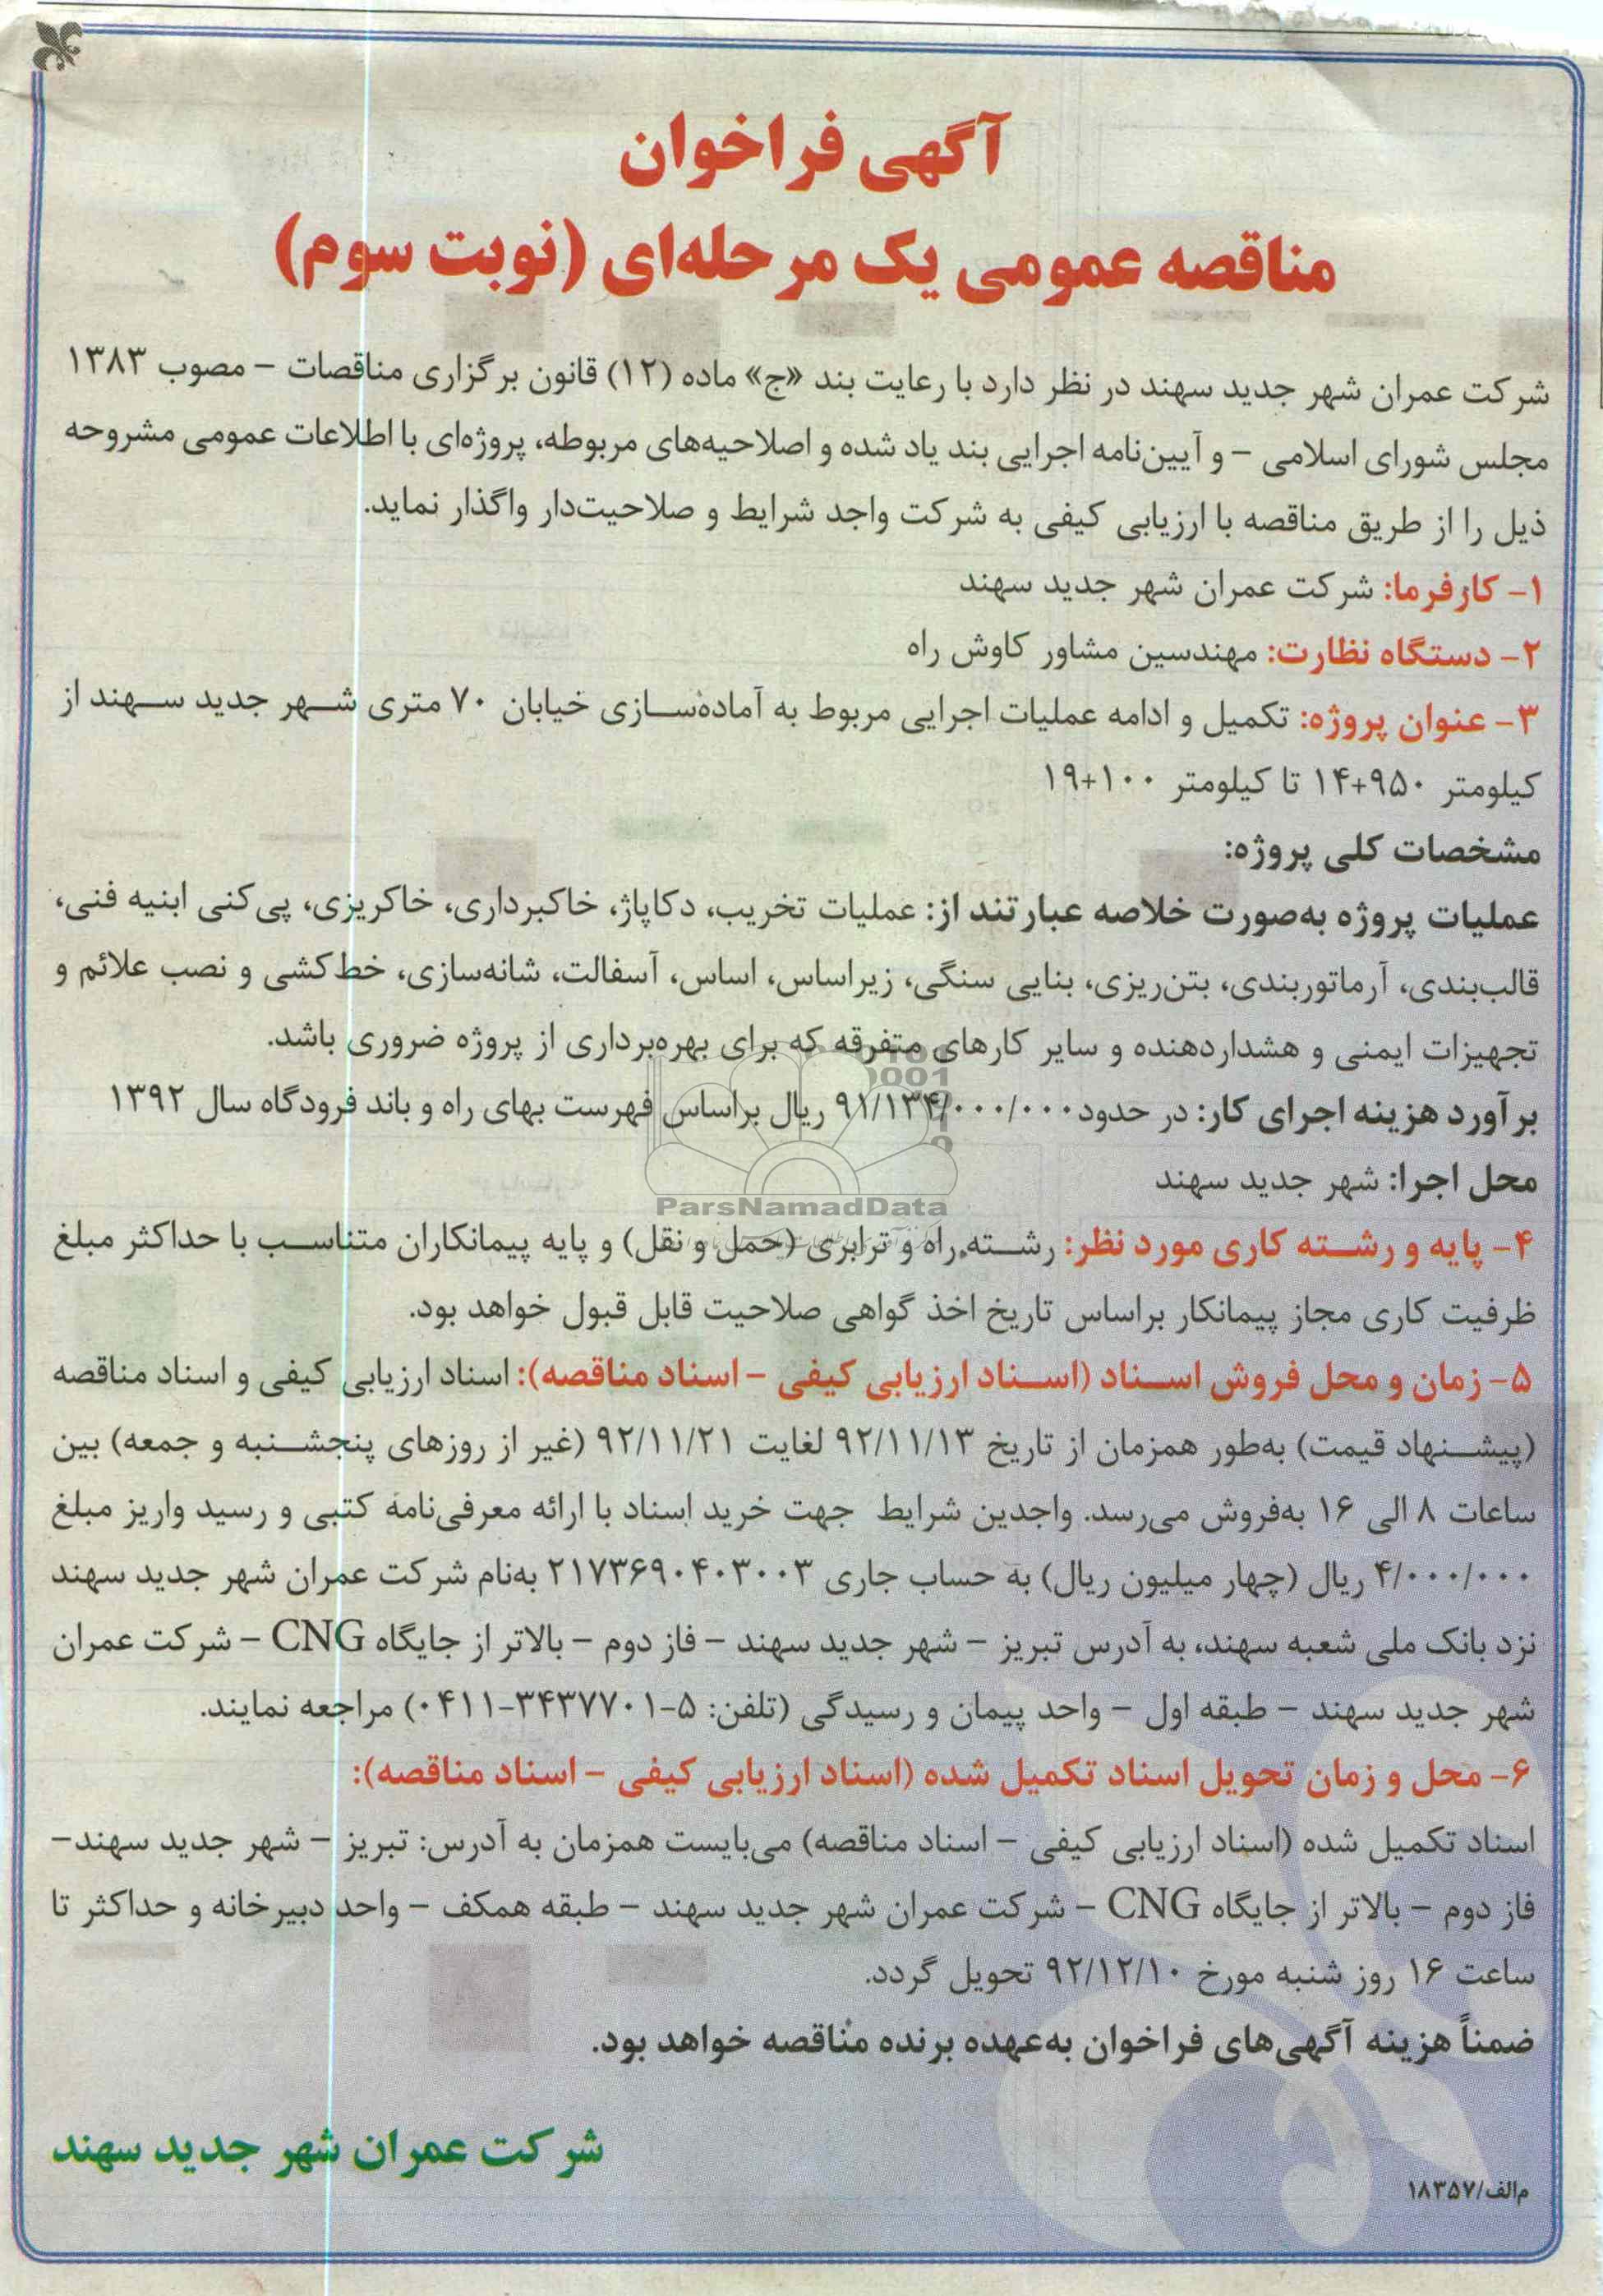 آگهی فراخوان
مناقصه عمومی یک مرحله‌ای (نوبت سوم)
شرکت عمران شهر جدید سهند در نظر دارد با رعایت بند «ج» ماده (۱۲) قانون برگزاری مناقصات – مصوب ۱۳۸۳
مجلس شورای اسلامی – و آیین‌نامه اجرایی بند یاد شده و اصلاحیه‌های مربوطه، پروژه‌ای با اطلاعات عمومی مشروحه
ذیل را از طریق مناقصه با ارزیابی کیفی به شرکت واجد شرایط و صلاحیت‌دار واگذار نماید.
۱- کارفرما: شرکت عمران شهر جدید سهند
۲- دستگاه نظارت: مهندسین مشاور کاوش راه
۳- عنوان پروژه: تکمیل و ادامه عملیات اجرایی مربوط به آماده‌سازی خیابان ۷۰ متری شهر جدید سهند از
کیلومتر ۹۵۰+۱۴ تا کیلومتر ۱۰۰+۱۹
مشخصات کلی پروژه:
عملیات پروژه به‌صورت خلاصه عبارتند از: عملیات تخریب، دکاپاژ، خاکبرداری، خاکریزی، پی‌کنی ابنیه فنی،
قالب‌بندی، آرماتوربندی، بتن‌ریزی، بنایی سنگی، زیراساس، اساس، آسفالت، شانه‌سازی، خط‌کشی و نصب علائم و
تجهیزات ایمنی و هشداردهنده و سایر کارهای متفرقه که برای بهره‌برداری از پروژه ضروری باشد.
برآورد هزینه اجرای کار: در حدود ۹۱/۱۳۴/۰۰۰/۰۰۰ ریال براساس فهرست بهای راه و باند فرودگاه سال ۱۳۹۲
محل اجرا: شهر جدید سهند
ParsNamadData
۴- پایه و رشته کاری مورد نظر: رشته راه و ترابری (حمل و نقل) و پایه پیمانکاران متناسب با حداکثر مبلغ
ظرفیت کاری مجاز پیمانکار براساس تاریخ اخذ گواهی صلاحیت قابل قبول خواهد بود.
۵- زمان و محل فروش اسناد (اسناد ارزیابی کیفی – اسناد مناقصه): اسناد ارزیابی کیفی و اسناد مناقصه
(پیشنهاد قیمت) به‌طور همزمان از تاریخ ۹۲/۱۱/۱۳ لغایت ۹۲/۱۱/۲۱ (غیر از روزهای پنجشنبه و جمعه) بین
ساعات ۸ الی ۱۶ به‌فروش می‌رسد. واجدین شرایط جهت خرید اسناد با ارائه معرفی‌نامه کتبی و رسید واریز مبلغ
۴/۰۰۰/۰۰۰ ریال (چهار میلیون ریال) به حساب جاری ۲۱۷۳۶۹۰۴۰۳۰۰۳ به‌نام شرکت عمران شهر جدید سهند
نزد بانک ملی شعبه سهند، به آدرس تبریز – شهر جدید سهند – فاز دوم – بالاتر از جایگاه CNG – شرکت عمران
شهر جدید سهند – طبقه اول – واحد پیمان و رسیدگی (تلفن: ۵-۳۴۳۷۷۰۱-۰۴۱۱) مراجعه نمایند.
۶- محل و زمان تحویل اسناد تکمیل شده (اسناد ارزیابی کیفی – اسناد مناقصه):
اسناد تکمیل شده (اسناد ارزیابی کیفی – اسناد مناقصه) می‌بایست همزمان به آدرس: تبریز – شهر جدید سهند–
فاز دوم – بالاتر از جایگاه CNG – شرکت عمران شهر جدید سهند – طبقه همکف – واحد دبیرخانه و حداکثر تا
ساعت ۱۶ روز شنبه مورخ ۹۲/۱۲/۱۰ تحویل گردد.
ضمناً هزینه آگهی‌های فراخوان به‌عهده برنده مناقصه خواهد بود.
شرکت عمران شهر جدید سهند
م‌الف/۱۸۳۵۷